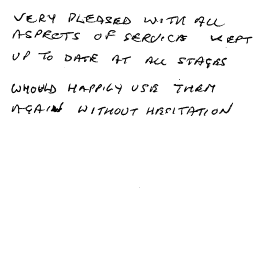 VERY PLEASED WITH ALL
ASPECTS OF SERVICE KEPT
UP TO DATE AT ALL STAGES
WHOULD HAPPILY USE THEM
AGAIN WITHOUT HESITATION